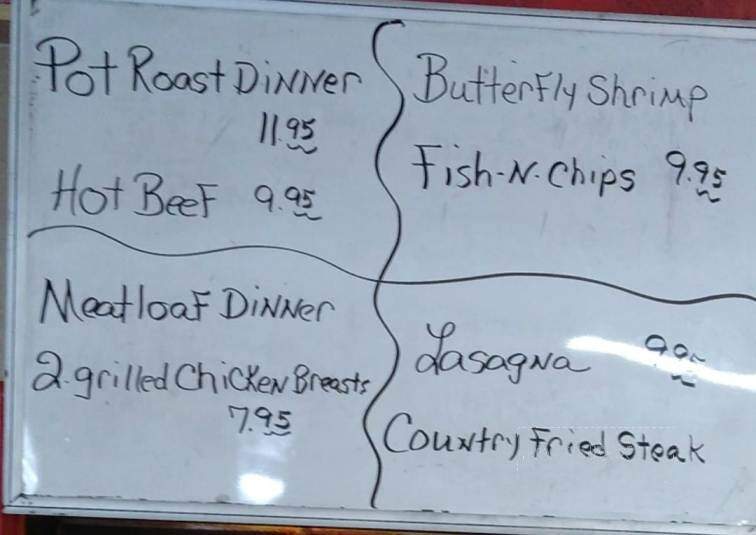 Pot Roast Dinner
11.95
Hot Beef 9.95
Butterfly Shrimp
Fish-N-Chips 9.95
Meatloaf Dinner
2 grilled Chicken Breasts
7.95
Lasagna
Country Fried Steak